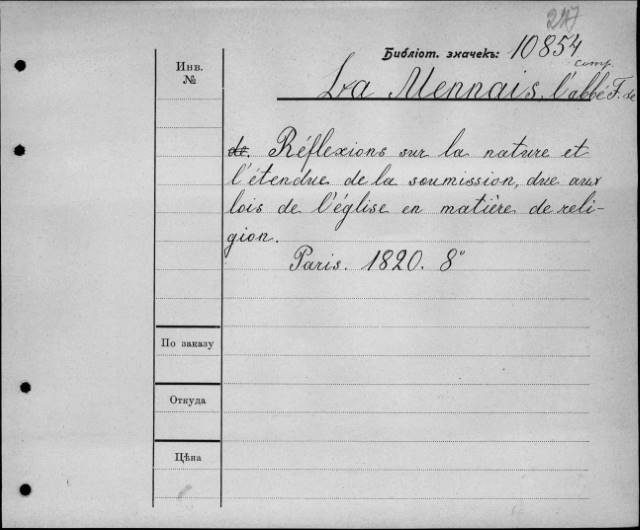 217
Библіот. значекъ: 10854
comp.
Инв.
№
La Mennais, l'abbé F. de
de. Réflexions sur la nature et
l'étendue de la soumission, due aux
lois de l'église en matière de reli-
gion.
Paris. 1820. 8°
По заказу
Откуда
Цѣна